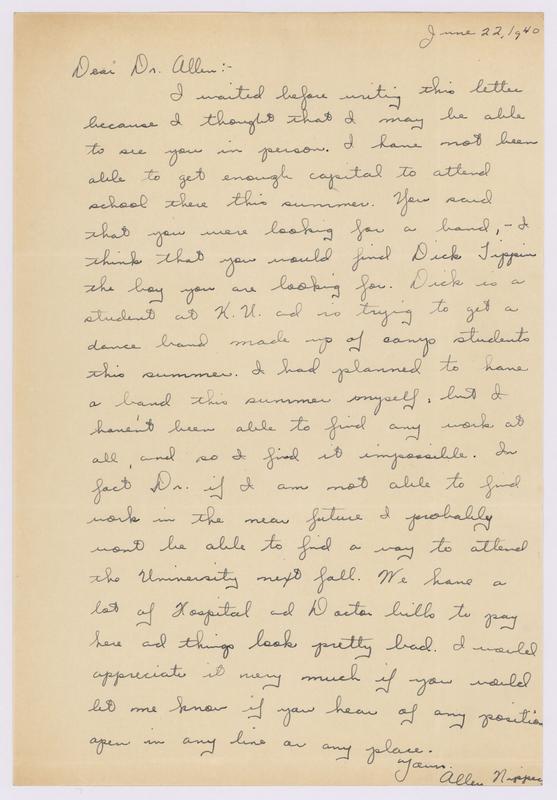 June 22, 1940
Dear Dr. Allen:-
I waited before writing this letter
because I thought that I may be able
to see you in person. I have not been
able to get enough capital to attend
school there this summer. You said
that you were looking for a band, - I
think that you would find Dick Tippin
the boy you are looking for. Dick is a
student at K.U. ad is trying to get a
dance band made up of camp students
this summer. I had planned to have
a band this summer myself, but I
haven't been able to find any work at
all, and so I find it impossible. In
fact Dr. if I am not able to find
work in the near future I probably
wont be able to find a way to attend
the University next fall. We have a
lot of Hospital ad Doctor bills to pay
here ad things look pretty bad. I would
appreciate it very much if you would
let me know if you hear of any position
open in any line or any place.
Yours.
Allen